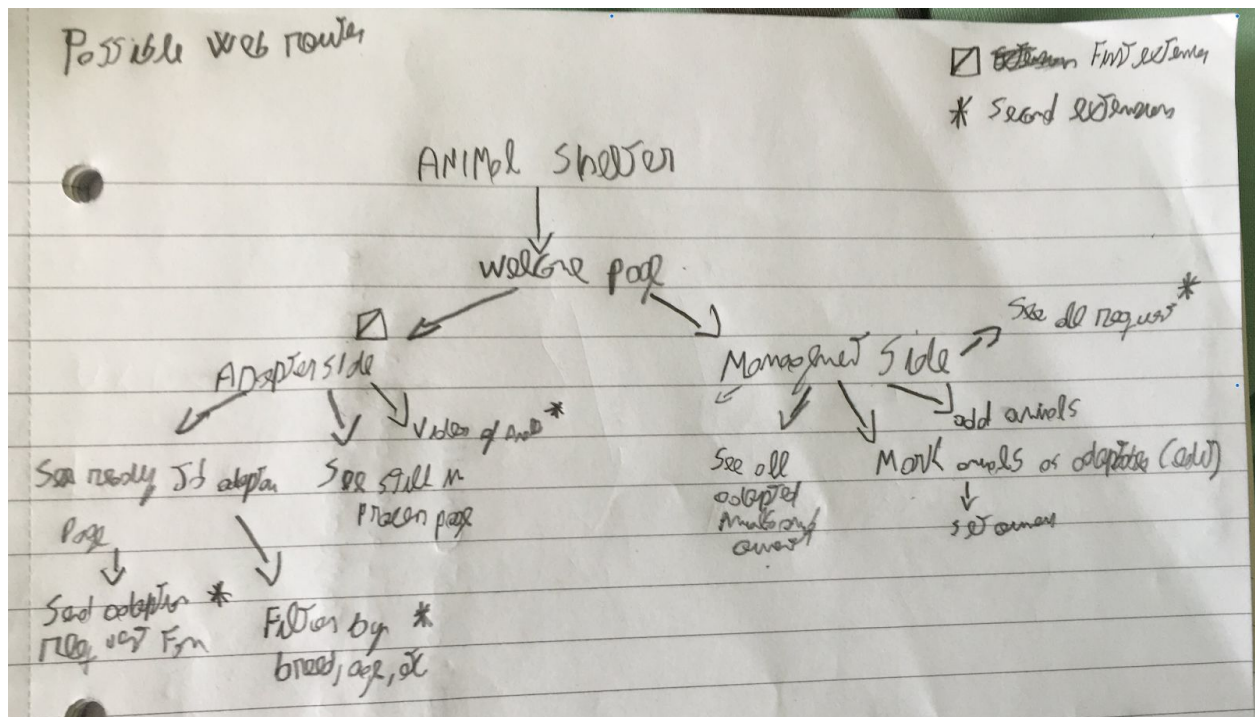 Possible web routes
First extension
* Second extension
ANIMAL Shelter
Welcome page
Adopter side
Management Side
See all request *
Video of *
add animals
See ready to adoption
Page
See still in
process page
See all
adopted
animals and
owners
Mark animals as adopted (edit)
set owners
Send adoption *
request Form
Filter by *
breed, age, etc